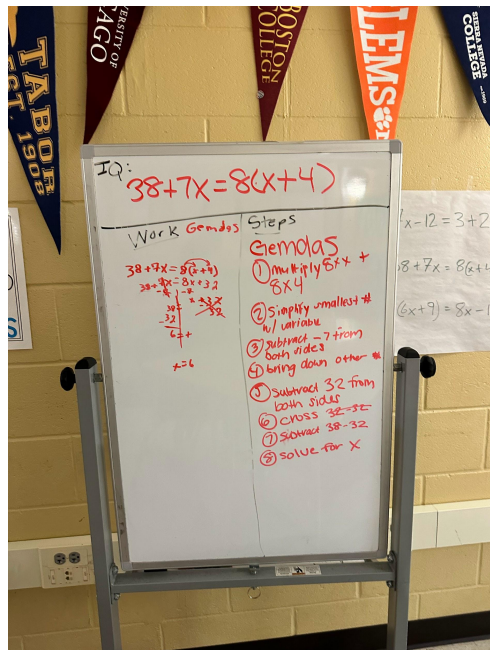 TABOR
EST. 1908
UNIVERSITY OF
AGO
BOSTON
COLLEGE
LEMS
SIERRA NEVADA
COLLEGE
IQ:
38+7x=8(x+4)
Work Gemdas
38+7x=8(x+4)
38+7x=8x+32
38=
-32
6=+
x=6
Steps
Gemdas
① multiply 8×x +
8x4
② Simplify smallest #
w/ variable
③ subtract -7 from
both sides
④ bring down other #
⑤ Subtract 32 from
both sides
⑥ cross 32-32
⑦ Subtract 38-32
⑧ solve for x
x-12=3+2
8+7x=8(x+4
(6x+9)=8x-1